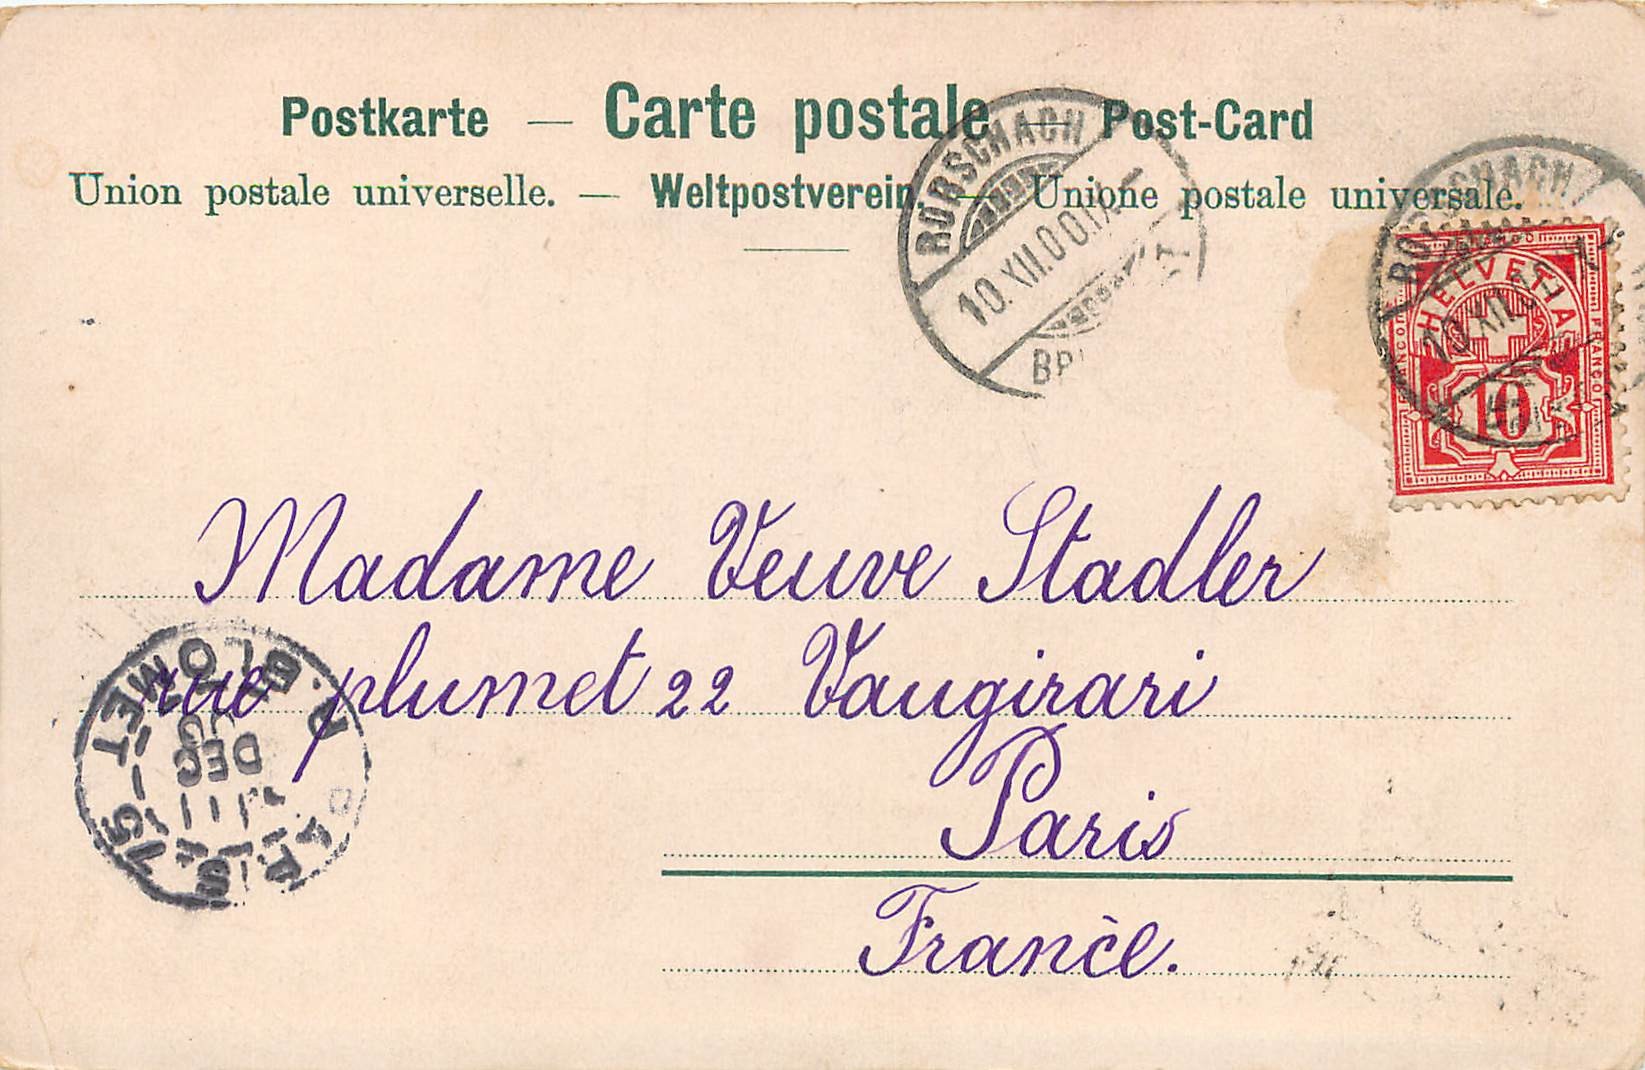 Postkarte — Carte postale — Post-Card
Union postale universelle. — Weltpostverein. — Unione postale universale.
RORSCHACH
10.XII.00.IX
RORSCHACH
10.XII.
HELVETIA
FRANCO
FRANCO
10
Madame Veuve Stadler
rue plumet 22 Vaugirari
Paris
France.
PARIS
R. BLOMET
DEC
15